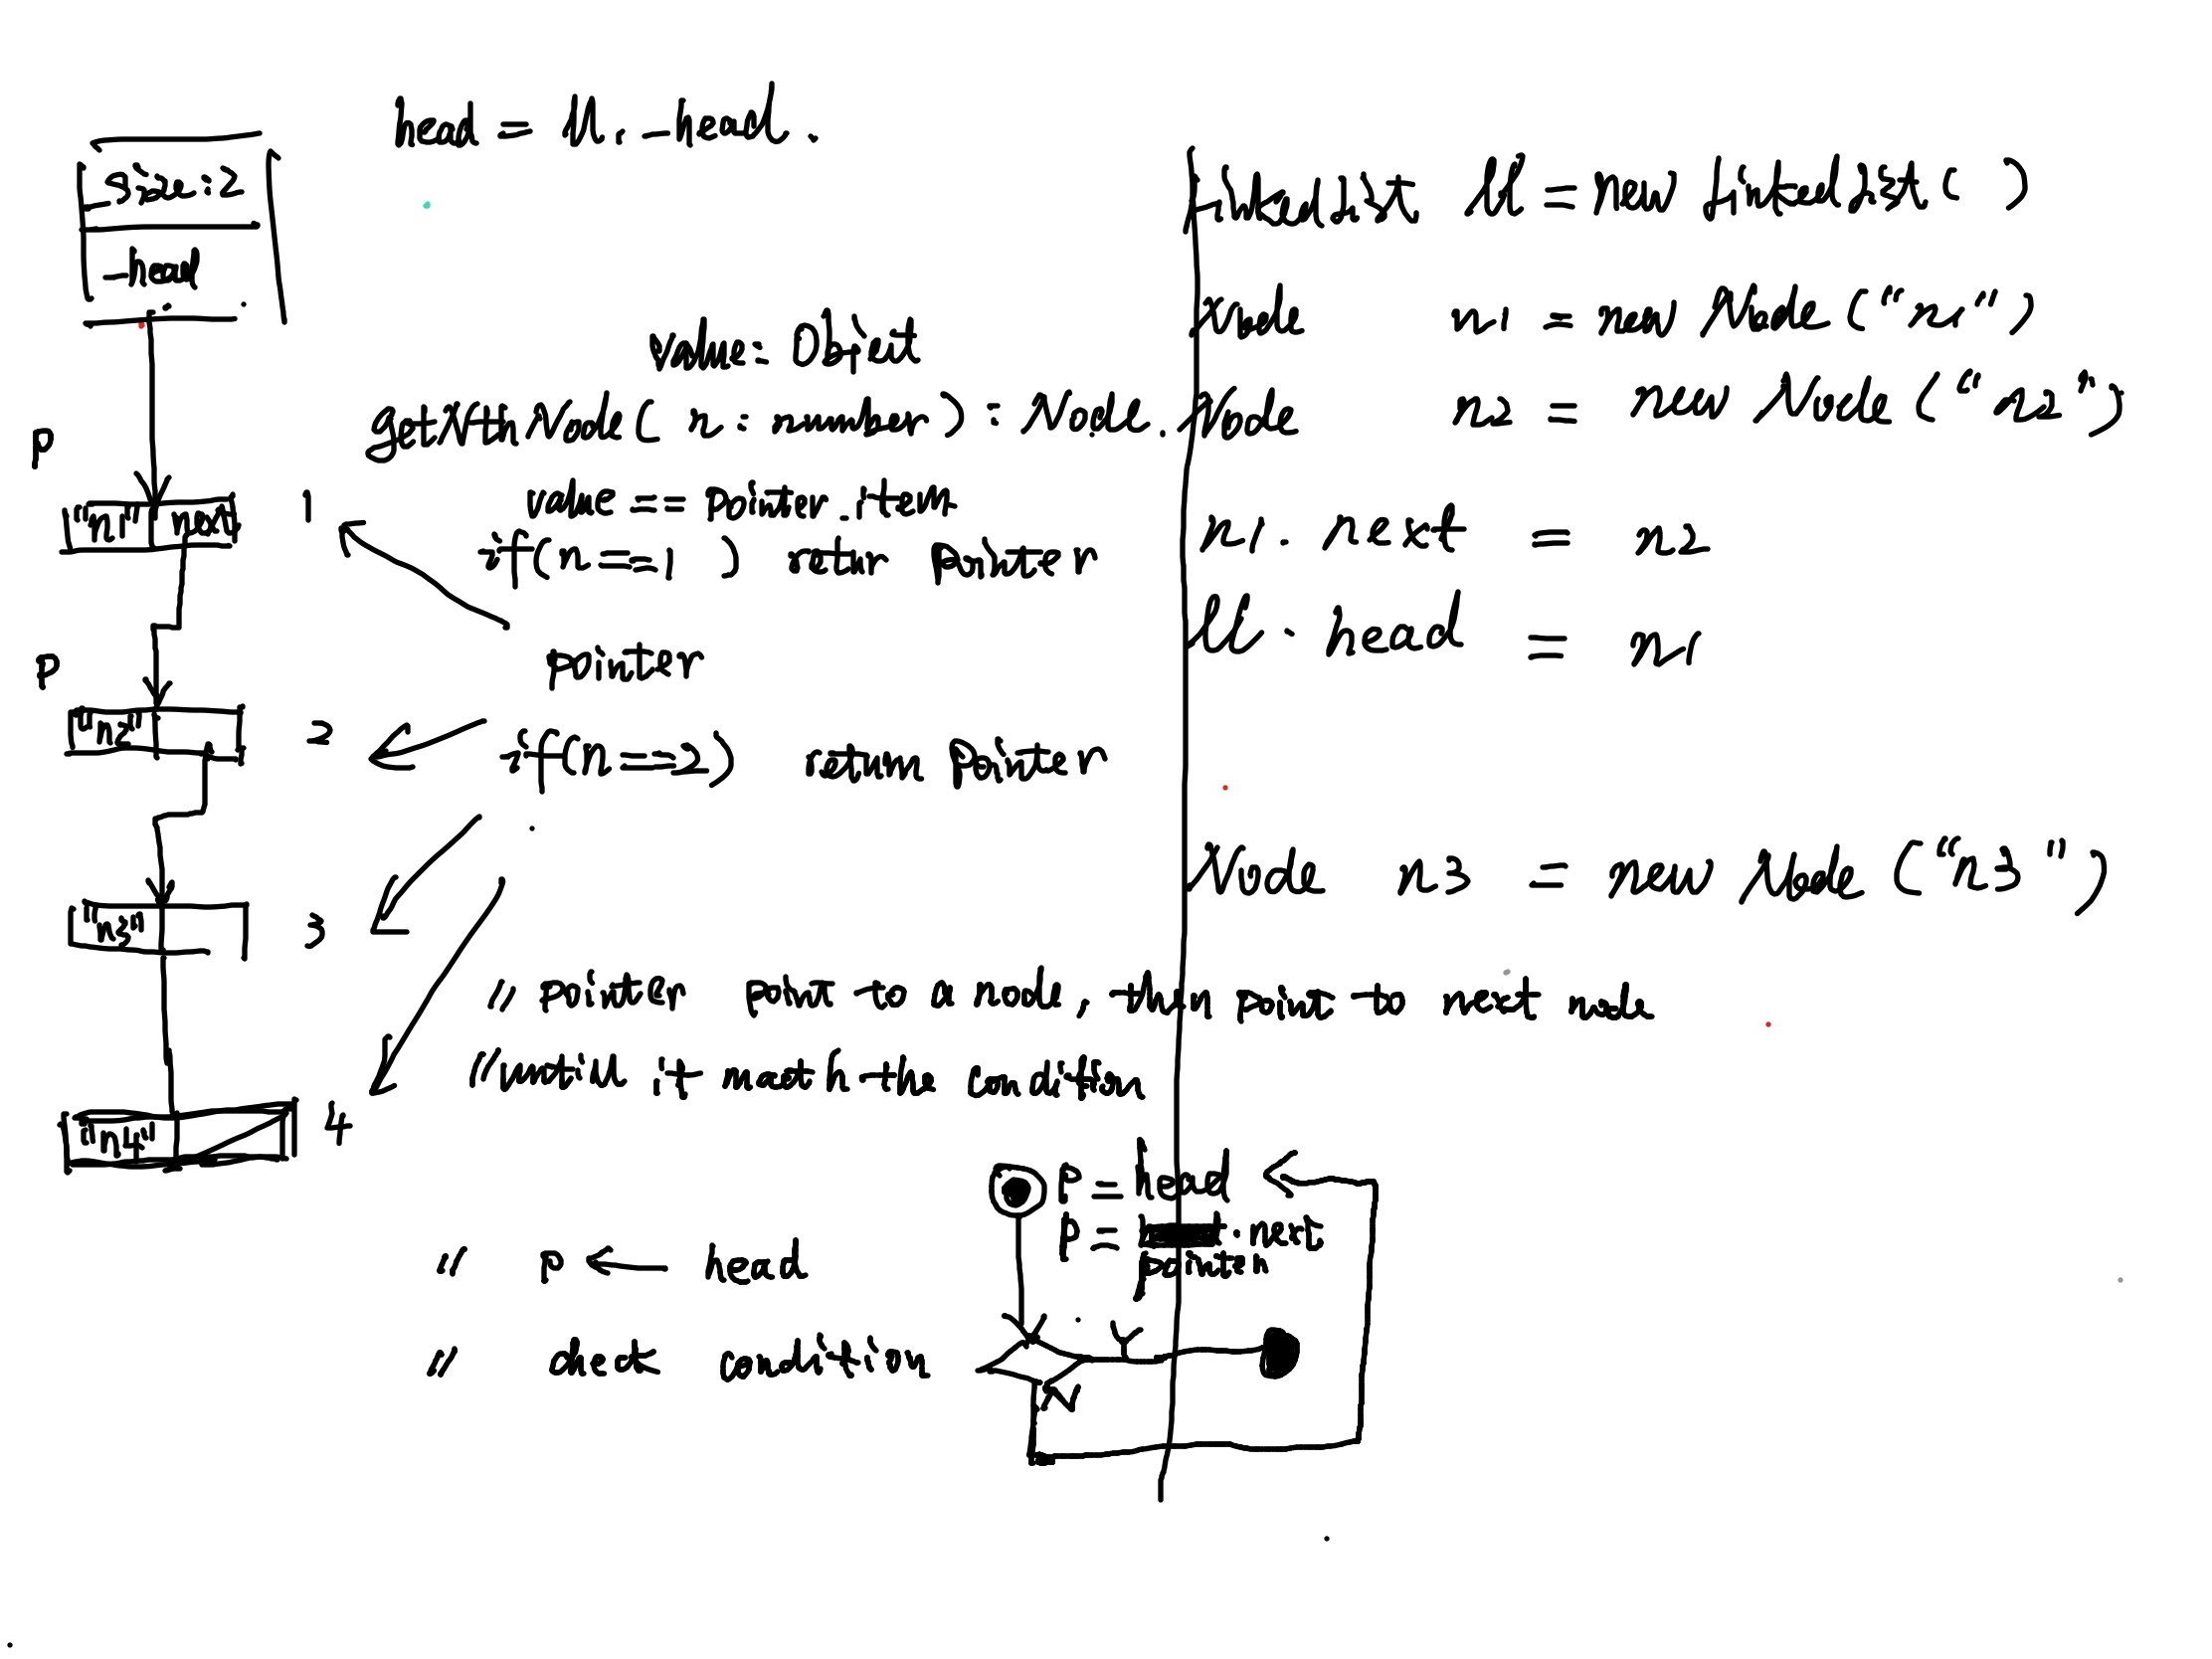 head = ll. _head.
size: 2
_head
value: Object
getNthNode( n: number) : Node.
p
"n1" next 1
value == pointer.item
if(n == 1 ) retur pointer
pointer
p
"n2" 2
if(n == 2) return pointer
"n3" 3
// pointer point to a node, then point to next node
// untill it match the condition
"n4" 4
// p ← head
// check condition
p = head
p = .next
pointer
Y
N
LinkedList ll = new LinkedList ( )
Node n1 = new Node ("n1")
Node n2 = new Node ("n2")
n1. next = n2
ll. head = n1
Node n3 = new Node ("n3")